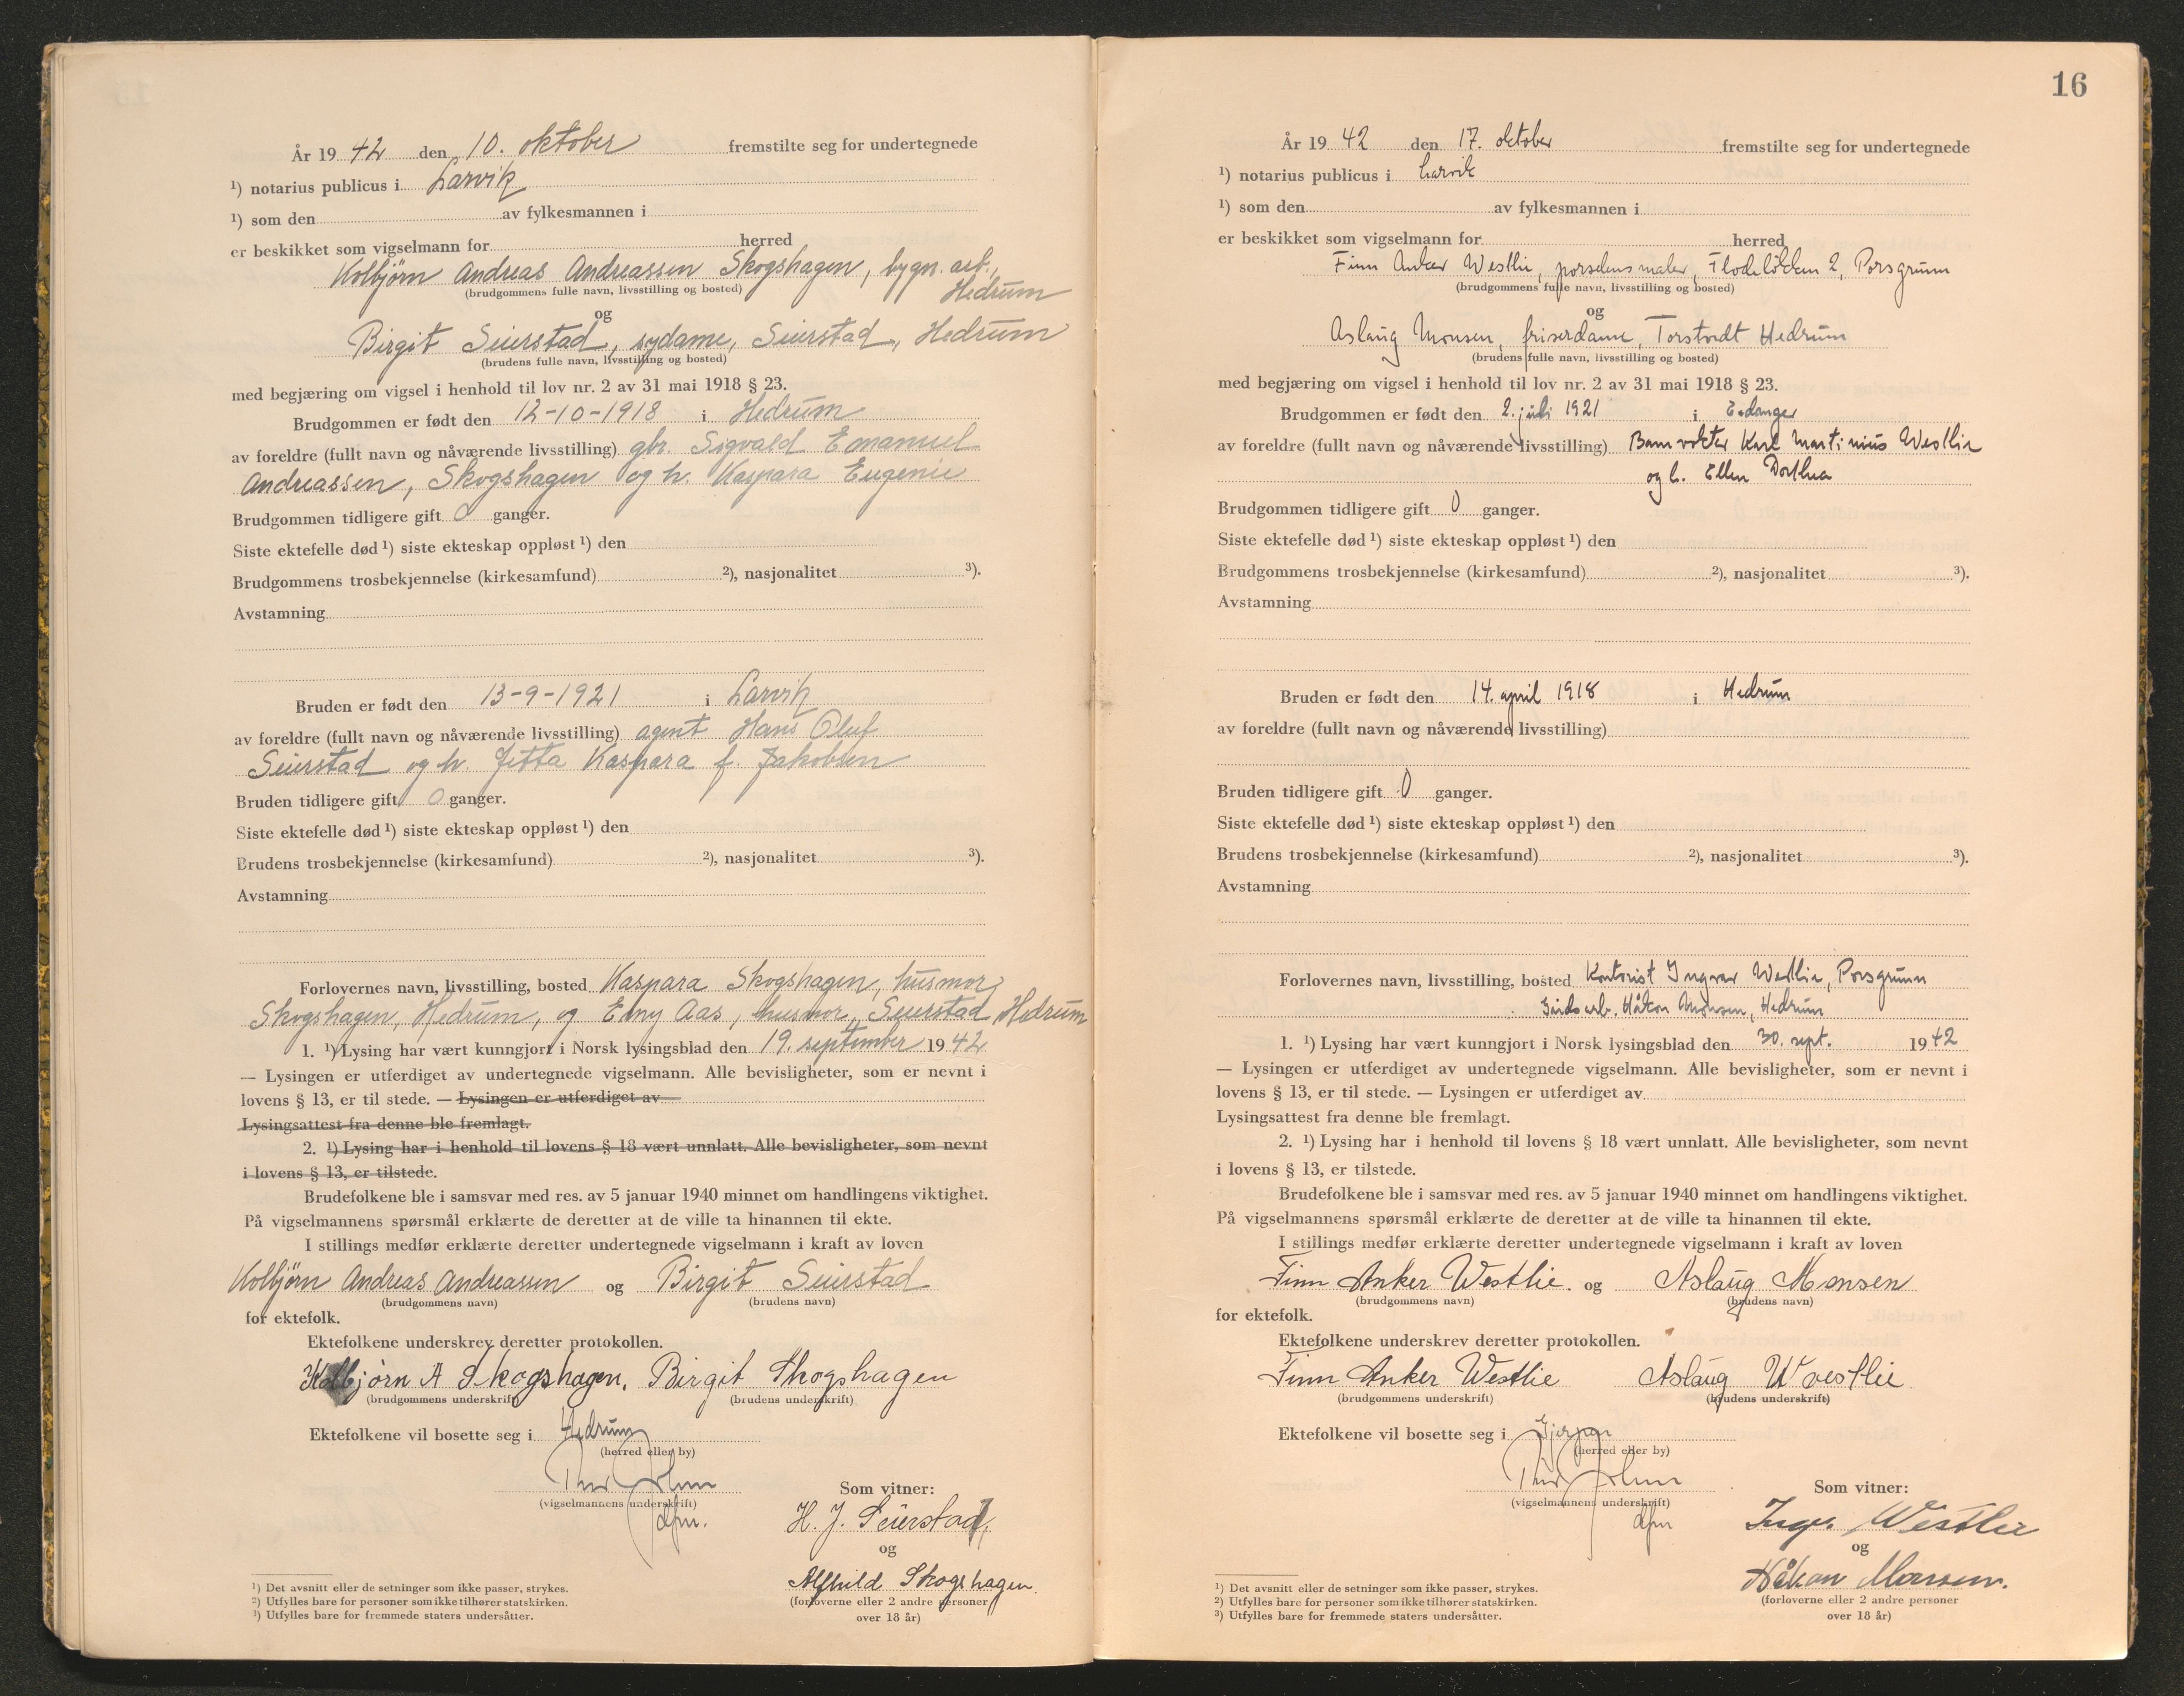 År 19 42 den 10. oktober fremstilte seg for undertegnede
¹) notarius publicus i Larvik
¹) som den av fylkesmannen i
er beskikket som vigselmann for herred
Kolbjörn Andreas Andreassen Skogshagen, bygn. arb.,
(brudgommens fulle navn, livsstilling og bosted) Hedrum
og
Birgit Seierstad, sydame, Seierstad, Hedrum
(brudens fulle navn, livsstilling og bosted)
med begjæring om vigsel i henhold til lov nr. 2 av 31 mai 1918 § 23.
Brudgommen er født den 12-10-1918 i Hedrum
av foreldre (fullt navn og nåværende livsstilling) gbr. Sigvald Emanuel
Andreassen, Skogshagen og h. Kaspara Eugenie
Brudgommen tidligere gift 0 ganger.
Siste ektefelle død ¹) siste ekteskap oppløst ¹) den
Brudgommens trosbekjennelse (kirkesamfund) ²), nasjonalitet ³).
Avstamning
Bruden er født den 13-9-1921 i Larvik
av foreldre (fullt navn og nåværende livsstilling) agent Hans Oluf
Seierstad og h. Jetta Kaspara f. Jakobsen
Bruden tidligere gift 0 ganger.
Siste ektefelle død ¹) siste ekteskap oppløst ¹) den
Brudens trosbekjennelse (kirkesamfund) ²), nasjonalitet ³).
Avstamning
Forlovernes navn, livsstilling, bosted Kaspara Skogshagen, husmor,
Skogshagen, Hedrum, og Emy Aas, husmor, Seierstad, Hedrum
1. ¹) Lysing har vært kunngjort i Norsk lysingsblad den 19. september 1942
— Lysingen er utferdiget av undertegnede vigselmann. Alle bevisligheter, som er nevnt i
lovens § 13, er til stede. — Lysingen er utferdiget av
Lysingsattest fra denne ble fremlagt.
2. ¹) Lysing har i henhold til lovens § 18 vært unnlatt. Alle bevisligheter, som nevnt
i lovens § 13, er tilstede.
Brudefolkene ble i samsvar med res. av 5 januar 1940 minnet om handlingens viktighet.
På vigselmannens spørsmål erklærte de deretter at de ville ta hinannen til ekte.
I stillings medfør erklærte deretter undertegnede vigselmann i kraft av loven
Kolbjörn Andreas Andreassen og Birgit Seierstad
(brudgommens navn) (brudens navn)
for ektefolk.
Ektefolkene underskrev deretter protokollen.
Kolbjørn A Skogshagen. Birgit Skogshagen
(brudgommens underskrift) (brudens underskrift)
Ektefolkene vil bosette seg i Hedrum
(herred eller by)
(vigselmannens underskrift)
dfm.
Som vitner:
H. J. Seierstad,
og
Alfhild Skogshagen.
(forloverne eller 2 andre personer
over 18 år)
¹) Det avsnitt eller de setninger som ikke passer, strykes.
²) Utfylles bare for personer som ikke tilhører statskirken.
³) Utfylles bare for fremmede staters undersåtter.
16
År 19 42 den 17. oktober fremstilte seg for undertegnede
¹) notarius publicus i Larvik
¹) som den av fylkesmannen i
er beskikket som vigselmann for herred
Finn Anker Westlie, porselensmaler, Flodeløkken 2, Porsgrunn
(brudgommens fulle navn, livsstilling og bosted)
og
Aslaug Monsen, friserdame, Torstvedt Hedrum
(brudens fulle navn, livsstilling og bosted)
med begjæring om vigsel i henhold til lov nr. 2 av 31 mai 1918 § 23.
Brudgommen er født den 2. juli 1921 i Eidanger
av foreldre (fullt navn og nåværende livsstilling) Banevokter Karl Martinius Westlie
og h. Ellen Dorthea
Brudgommen tidligere gift 0 ganger.
Siste ektefelle død ¹) siste ekteskap oppløst ¹) den
Brudgommens trosbekjennelse (kirkesamfund) ²), nasjonalitet ³).
Avstamning
Bruden er født den 14. april 1918 i Hedrum
av foreldre (fullt navn og nåværende livsstilling)
Bruden tidligere gift 0 ganger.
Siste ektefelle død ¹) siste ekteskap oppløst ¹) den
Brudens trosbekjennelse (kirkesamfund) ²), nasjonalitet ³).
Avstamning
Forlovernes navn, livsstilling, bosted Kontorist Ingvar Westlie, Porsgrunn
Gårdsarb. Håkon Monsen, Hedrum
1. ¹) Lysing har vært kunngjort i Norsk lysingsblad den 30. sept. 1942
— Lysingen er utferdiget av undertegnede vigselmann. Alle bevisligheter, som er nevnt i
lovens § 13, er til stede. — Lysingen er utferdiget av
Lysingsattest fra denne ble fremlagt.
2. ¹) Lysing har i henhold til lovens § 18 vært unnlatt. Alle bevisligheter, som nevnt
i lovens § 13, er tilstede.
Brudefolkene ble i samsvar med res. av 5 januar 1940 minnet om handlingens viktighet.
På vigselmannens spørsmål erklærte de deretter at de ville ta hinannen til ekte.
I stillings medfør erklærte deretter undertegnede vigselmann i kraft av loven
Finn Anker Westlie. og Aslaug Monsen
(brudgommens navn) (brudens navn)
for ektefolk.
Ektefolkene underskrev deretter protokollen.
Finn Anker Westlie Aslaug Westlie
(brudgommens underskrift) (brudens underskrift)
Ektefolkene vil bosette seg i Gjerpen
(herred eller by)
(vigselmannens underskrift)
dfm
Som vitner:
Ingv. Westlie
og
Håkon Monsen.
(forloverne eller 2 andre personer
over 18 år)
¹) Det avsnitt eller de setninger som ikke passer, strykes.
²) Utfylles bare for personer som ikke tilhører statskirken.
³) Utfylles bare for fremmede staters undersåtter.